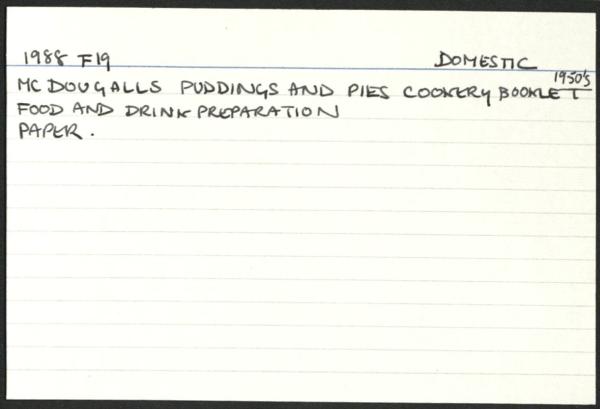 1988 F19 DOMESTIC
1950's
MCDOUGALLS PUDDINGS AND PIES COOKERY BOOKLET
FOOD AND DRINK PREPARATION
PAPER.